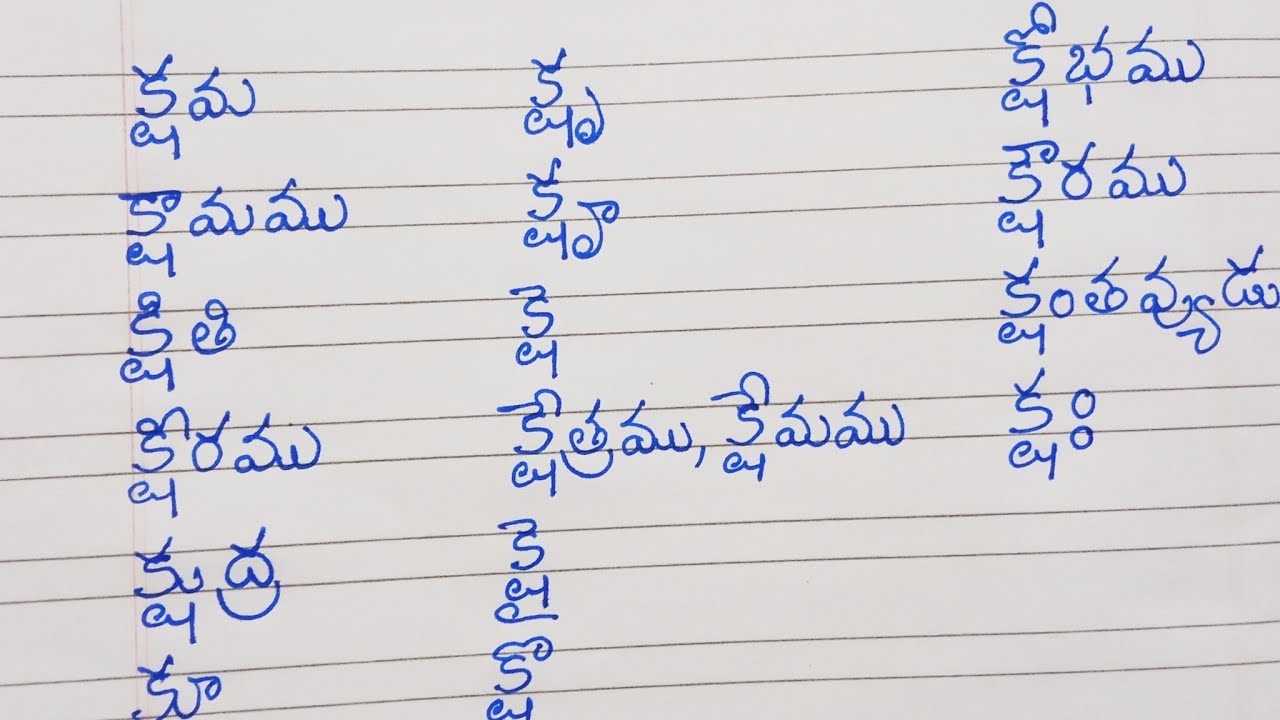 క్షమ
క్షామము
క్షితి
క్షీరము
క్షుద్ర
క్షూ
క్షృ
క్షౄ
క్షె
క్షేత్రము, క్షేమము
క్షై
క్షొ
క్షోభము
క్షౌరము
క్షంతవ్యుడు
క్షః